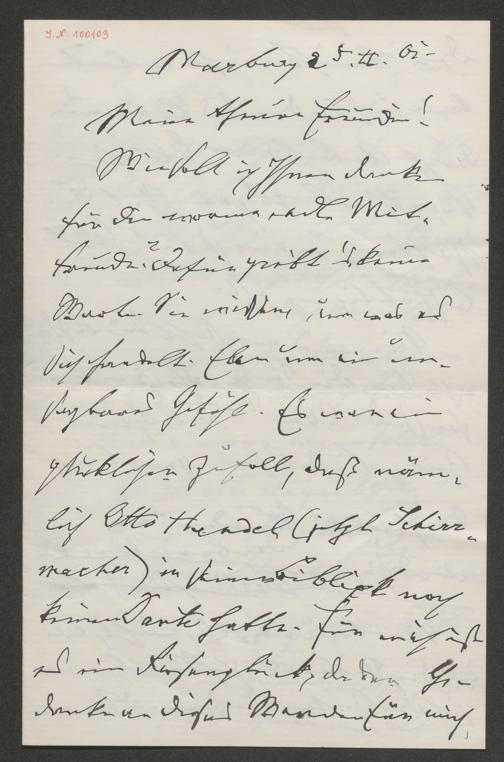 J.N. 100103
Marburg 25.II.02
Meine theure Freundin!
Wie soll ich Ihnen danken
für die warme edle Mit-
freude? Dafür giebt's keine
Worte. Sie wissens, um was es
sich handelt. Eben um ein un-
sagbares Gefühl. Es war ein
glücklicher Zufall, daß näm-
lich Otto Hendel (jetzt Schirr-
macher) in seiner Bibliothek noch
keinen Dante hatte. Für mich ist
es ein Riesenglück, der Ge-
danke an dieses Werden für mich